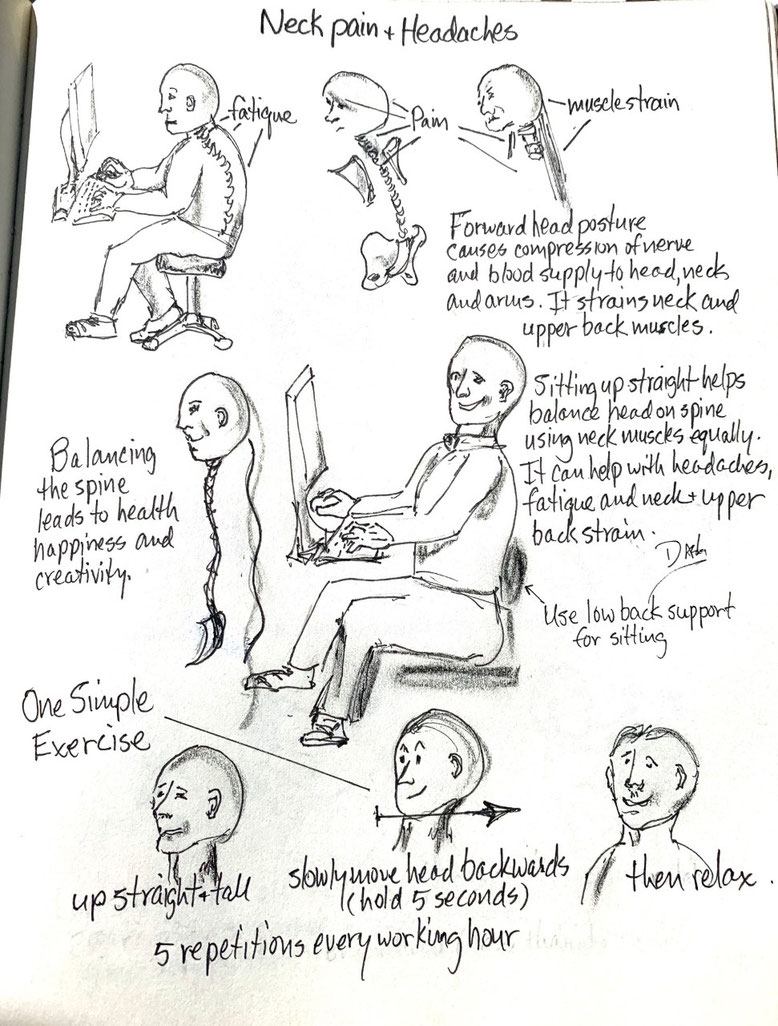 Neck pain + Headaches
fatigue
Pain
muscle strain
Forward head posture
causes compression of nerve
and blood supply to head, neck
and arms. It strains neck and
upper back muscles.
Sitting up straight helps
balance head on spine
using neck muscles equally.
It can help with headaches,
fatigue and neck + upper
back strain.
Balancing
the spine
leads to health
happiness and
creativity.
Use low back support
for sitting
One Simple
Exercise
up straight + tall
slowly move head backwards
(hold 5 seconds)
then relax.
5 repetitions every working hour